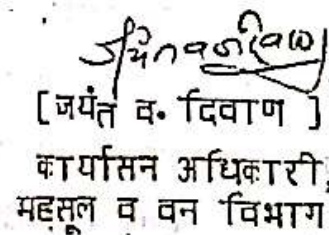 [जयंत व. दिवाण ]
कार्यासन अधिकारी,
महसूल व वन विभाग